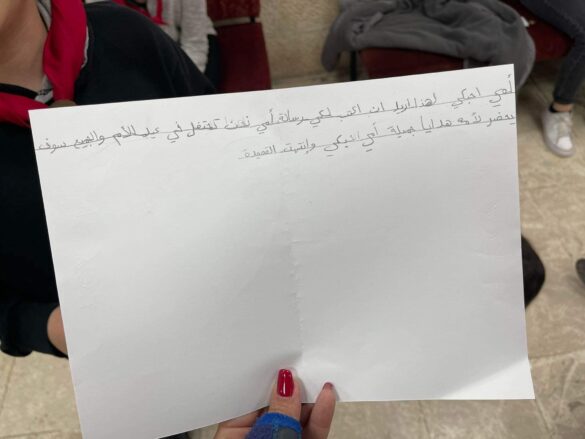 أمي احبكي لهذا اريد ان اكتب لكي رسالة أمي نحن نحتفل في عيد الأم والجميع سوف
يحضر لأمه هدايا جميلة أمي احبكي وإنتهت القصيدة.